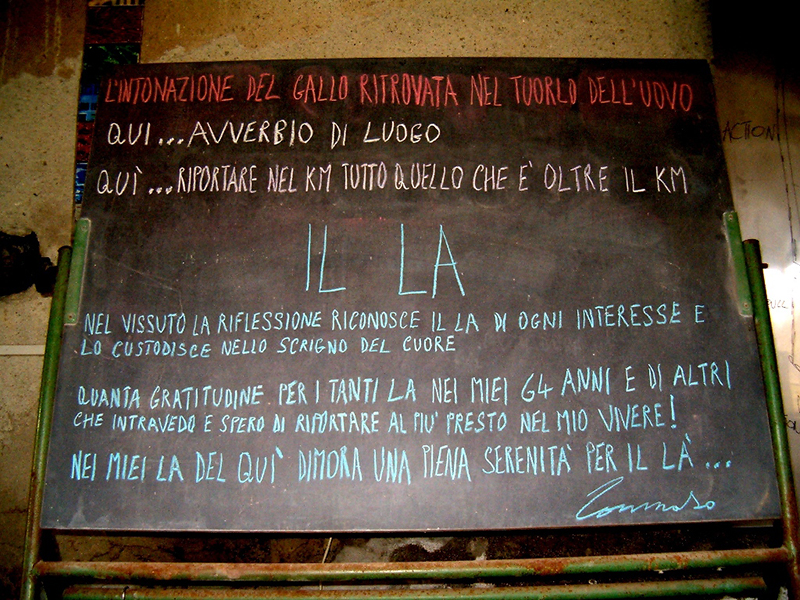 L'INTONAZIONE DEL GALLO RITROVATA NEL TUORLO DELL'UOVO
QUI...AVVERBIO DI LUOGO
QUÌ...RIPORTARE NEL KM TUTTO QUELLO CHE E' OLTRE IL KM
IL LA
NEL VISSUTO LA RIFLESSIONE RICONOSCE IL LA DI OGNI INTERESSE E
LO CUSTODISCE NELLO SCRIGNO DEL CUORE
QUANTA GRATITUDINE PER I TANTI LA NEI MIEI 64 ANNI E DI ALTRI
CHE INTRAVEDO E SPERO DI RIPORTARE AL PIU' PRESTO NEL MIO VIVERE!
NEI MIEI LA DEL QUI' DIMORA UNA PIENA SERENITA' PER IL LÀ...
Tommaso
ACTION